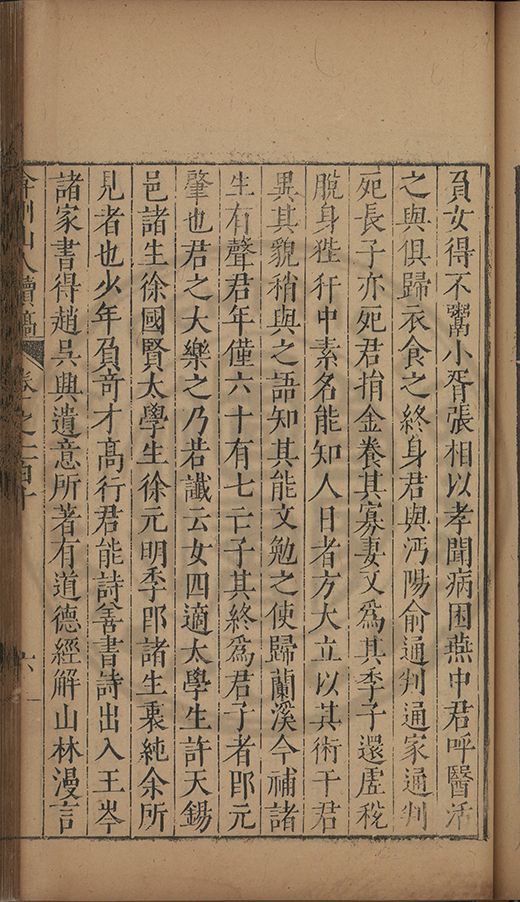 負女得不鬻小胥張相以孝聞病困燕中君呼醫活
之與俱歸衣食之終身君與沔陽俞通判通家通判
死長子亦死君捐金養其寡妻又爲其季子還虛稅
脫身狴犴中素名能知人日者方大立以其術干君
異其貌稍與之語知其能文勉之使歸蘭溪今補諸
生有聲君年僅六十有七亡子其終爲君子者卽元
肇也君之大樂之乃若讖云女四適太學生許天錫
邑諸生徐國賢太學生徐元明季卽諸生秉純余所
見者也少年負奇才高行君能詩善書詩出入王岑
諸家書得趙吳興遺意所著有道德經解山林漫言
弇州山人續稿
卷之一百十
六